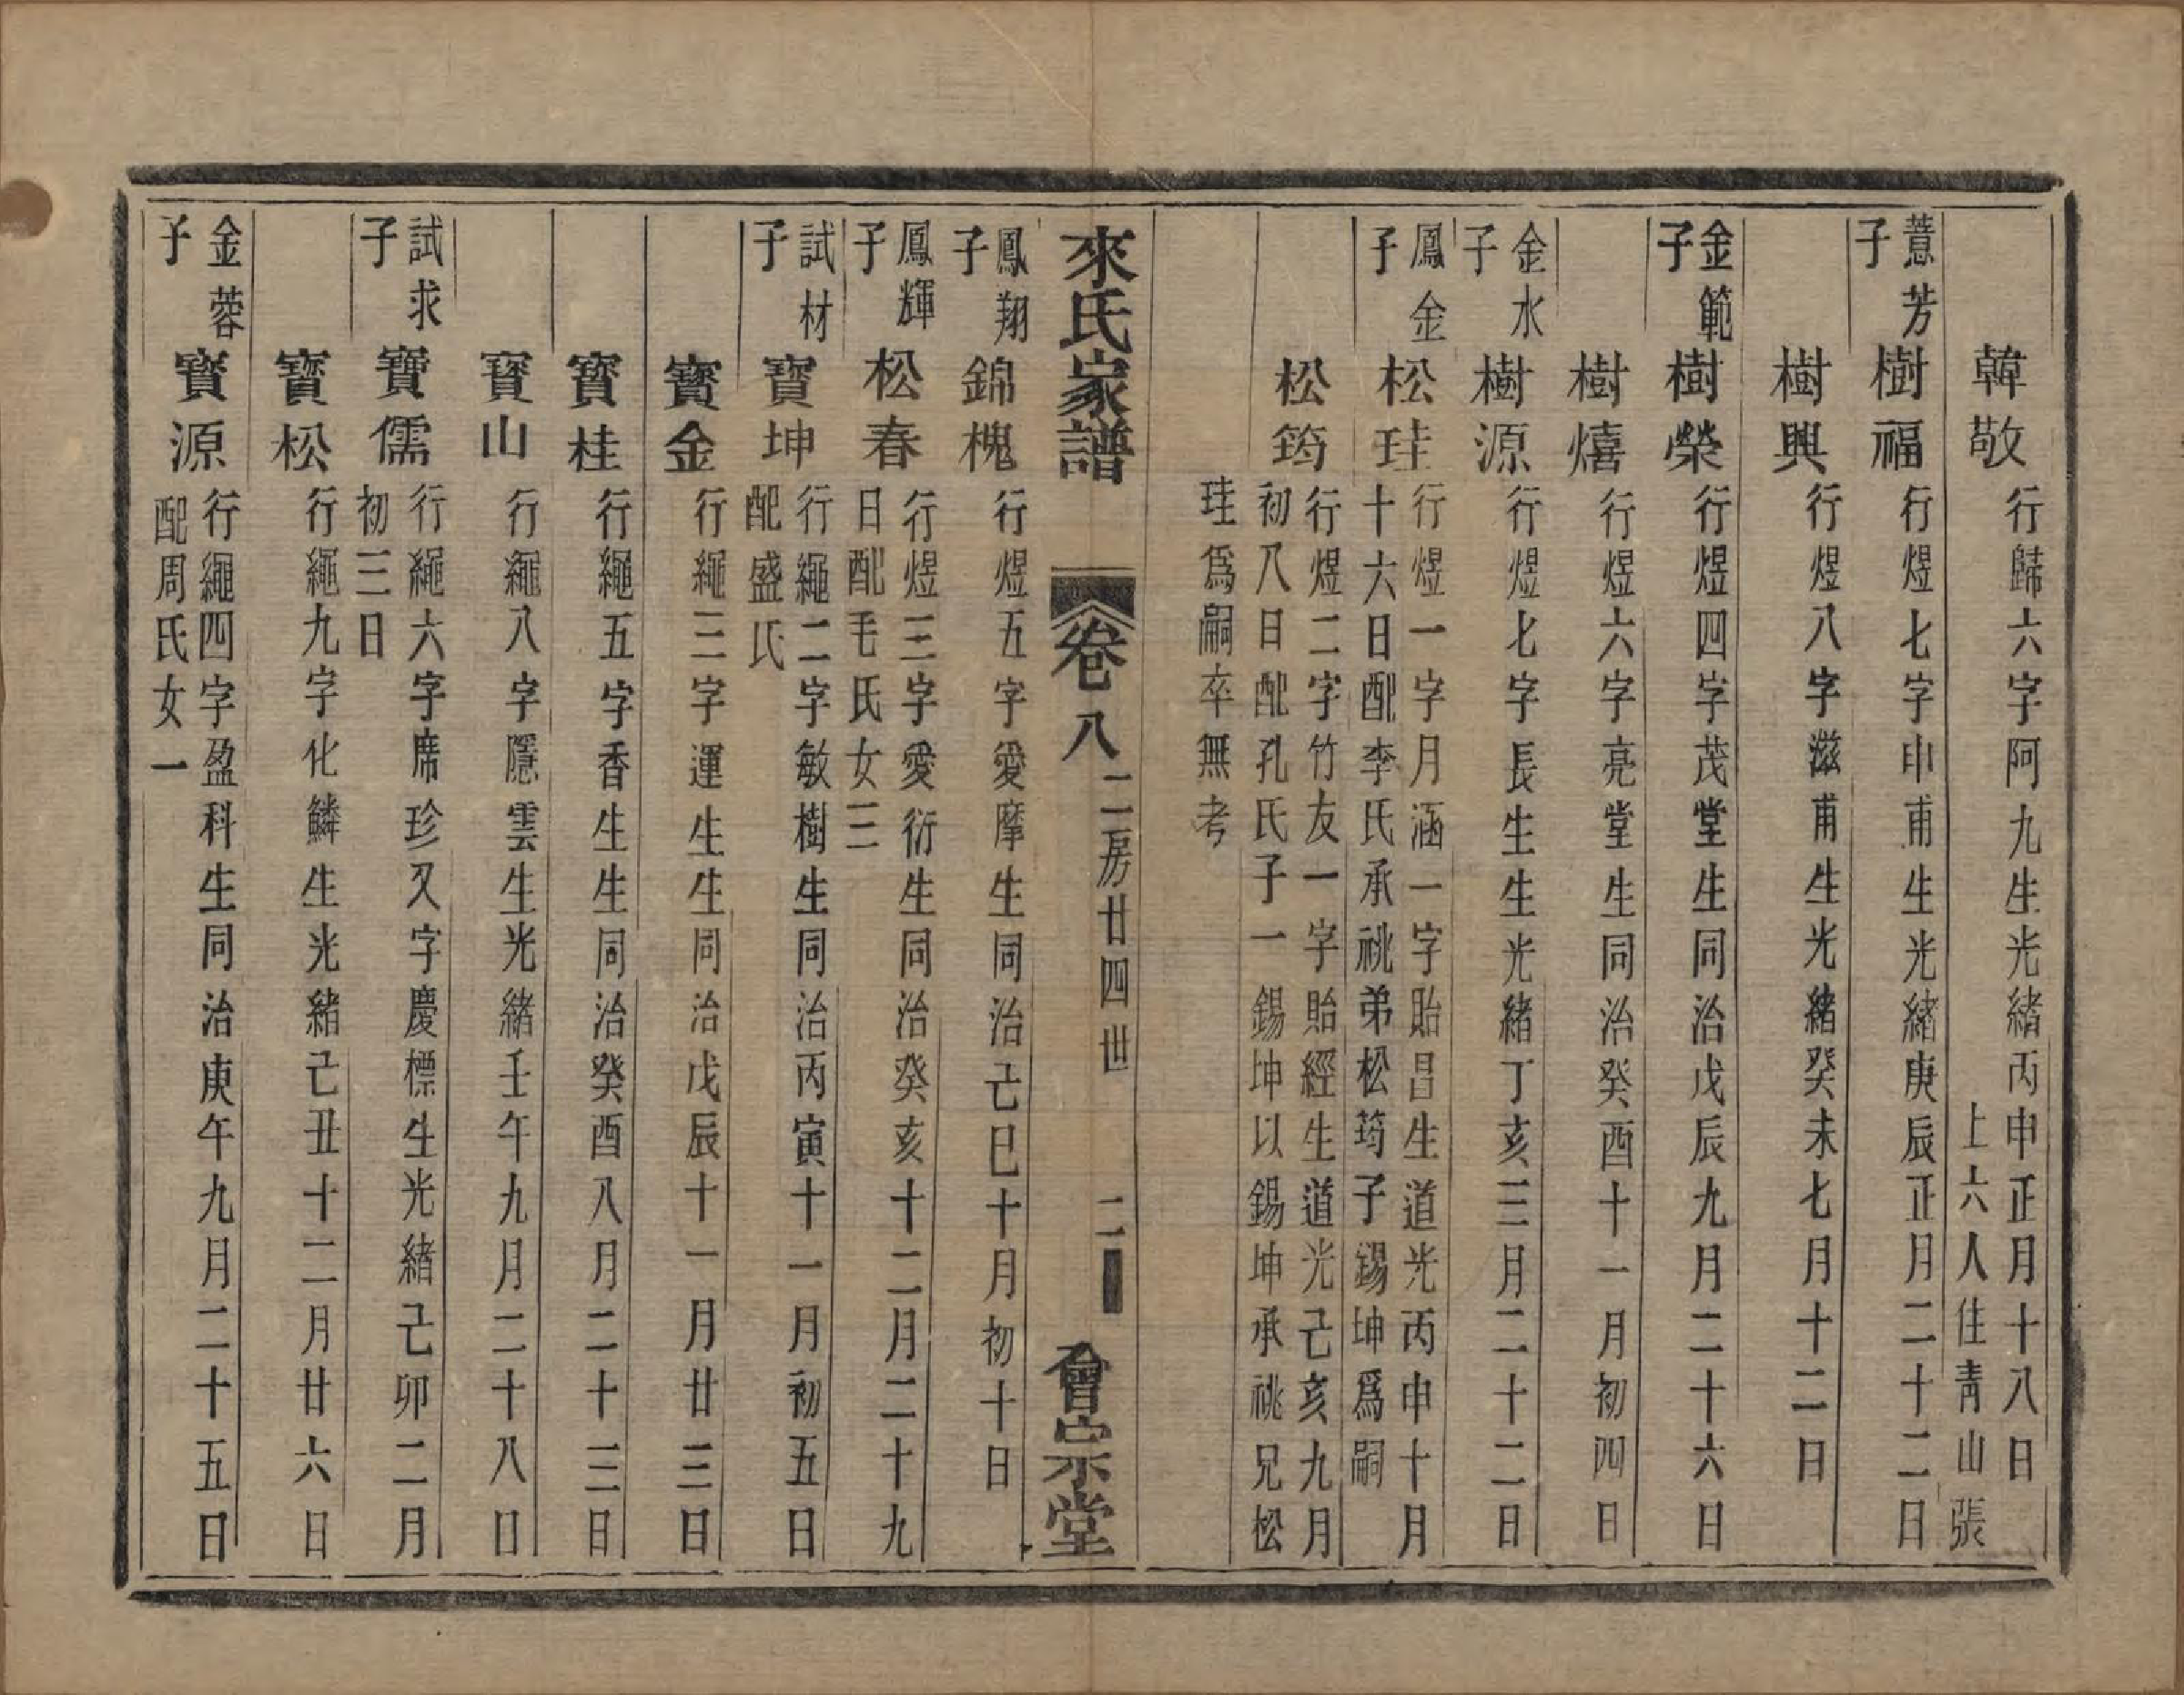 韓敬
行歸六字阿九生光緒丙申正月十八日
上六人住靑山張
薏芳
子
樹福
行煜七字申甫生光緒庚辰正月二十二日
樹興
行煜八字滋甫生光緒癸未七月十二日
金範
子
樹榮
行煜四字茂堂生同治戊辰九月二十六日
樹熺
行煜六字亮堂生同治癸酉十一月初四日
金水
子
樹源
行煜七字長生生光緒丁亥三月二十二日
鳳金
子
松珪
行煜一字月涵一字貽昌生道光丙申十月
十六日配李氏承祧弟松筠子錫坤爲嗣
松筠
行煜二字竹友一字貽經生道光己亥九月
初八日配孔氏子一錫坤以錫坤承祧兄松
珪爲嗣卒無考
來氏家譜
卷八
二房廿四世
二
會宗堂
鳳翔
子
錦槐
行煜五字愛摩生同治己巳十月初十日
鳳輝
子
松春
行煜三字愛衍生同治癸亥十二月二十九
日配毛氏女三
試材
子
寶坤
行繩二字敏樹生同治丙寅十一月初五日
配盛氏
寶金
行繩三字運生生同治戊辰十一月廿三日
寶桂
行繩五字香生生同治癸酉八月二十三日
寶山
行繩八字隱雲生光緒壬午九月二十八日
試求
子
寶儒
行繩六字席珍又字慶標生光緒己卯二月
初三日
寶松
行繩九字化鱗生光緒己丑十二月廿六日
金蓉
子
寶源
行繩四字盈科生同治庚午九月二十五日
配周氏女一